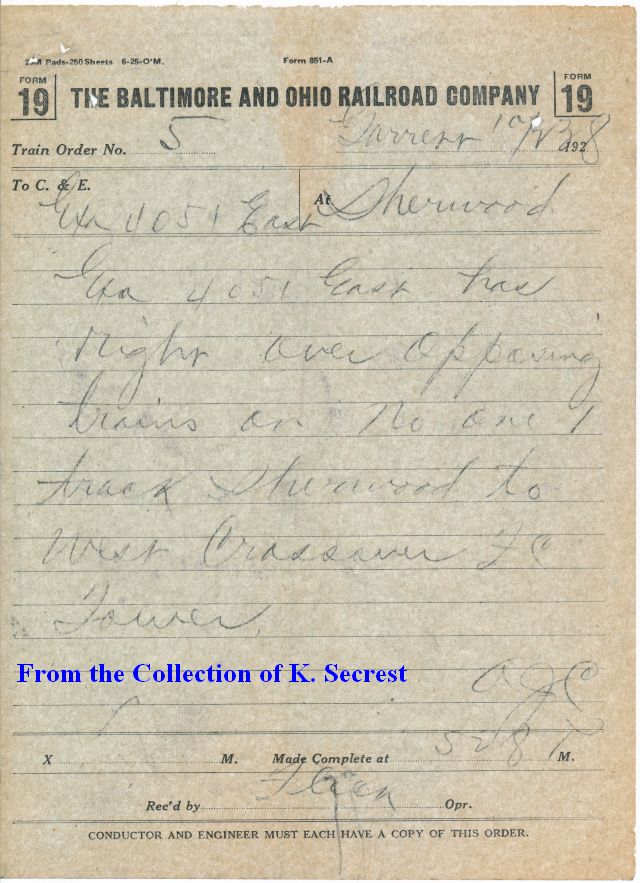 25M Pads-250 Sheets 6-25-O'M. Form 851-A
FORM 19 THE BALTIMORE AND OHIO RAILROAD COMPANY FORM 19
Train Order No. 5 Garrett 1928
To C. & E. At Sherwood
Exa 4051 East
Exa 4051 East has
right over opposing
trains on No one 1
track Sherwood to
West Crossover FC
Tower.
From the Collection of K. Secrest
X M. Made Complete at 528 P M.
Rec'd by Opr.
CONDUCTOR AND ENGINEER MUST EACH HAVE A COPY OF THIS ORDER.